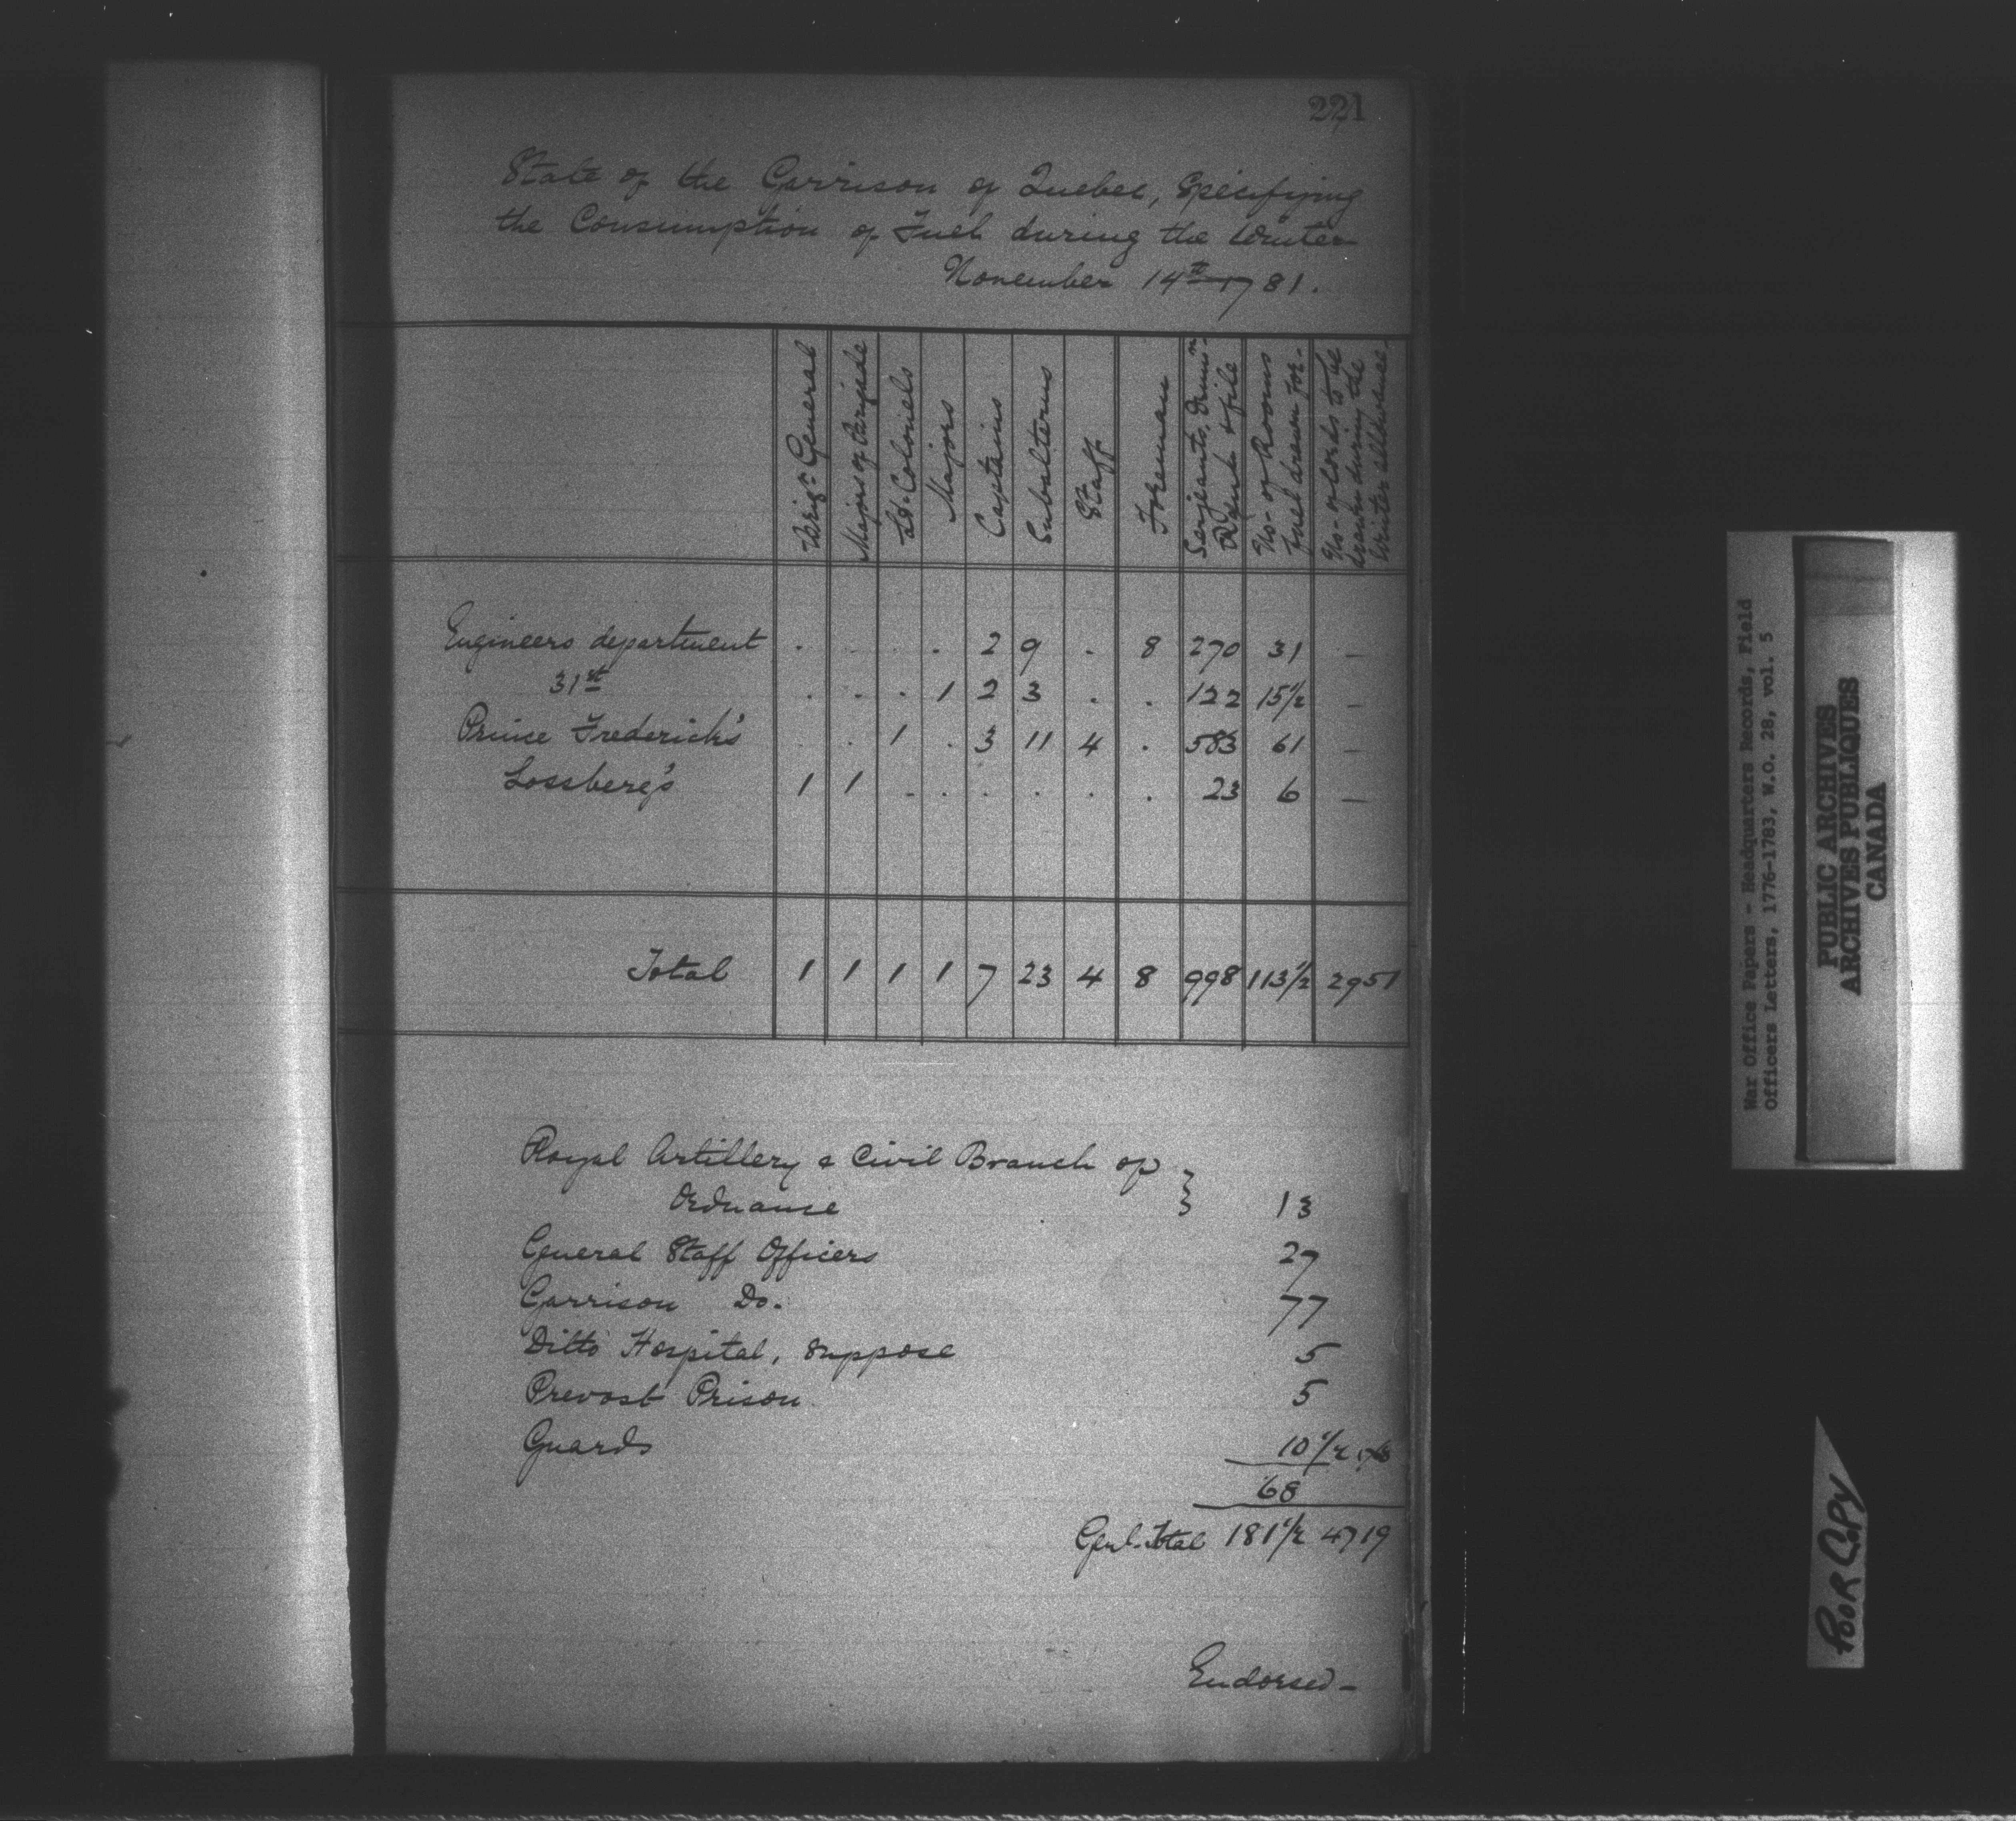 221
State of the Garrison of Quebec, Specifying
the Consumption of Fuel during the Winter
November 14th 1781.
Brigr. General | Majors of Brigade | Lt. Colonels | Majors | Captains | Subalterns | Staff | Foreman | Serjeants, Drumrs. Rank & file | No- of Rooms fuel drawn for- | No- of Cords to be drawn during the Winter allowance-
Engineers department . . . . 2 9 . 8 270 31 —
31st . . . 1 2 3 . . 122 15 1/2 —
Prince Frederick's . . 1 . 3 11 4 . 583 61 —
Lossberg's 1 1 . . . . . . 23 6 —
Total 1 1 1 1 7 23 4 8 998 113 1/2 2951
Royal Artillery & Civil Branch of }
Ordnance 13
General Staff Officers 27
Garrison Do. 77
Ditto Hospital, suppose 5
Prevost Prison 5
Guards 10 1/2
68
Genl. Total 181 1/2 4719
Endorsed-
War Office Papers - Headquarters Records, Field
Officers Letters, 1776-1783, W.O. 28, vol. 5
PUBLIC ARCHIVES
ARCHIVES PUBLIQUES
CANADA
POOR COPY